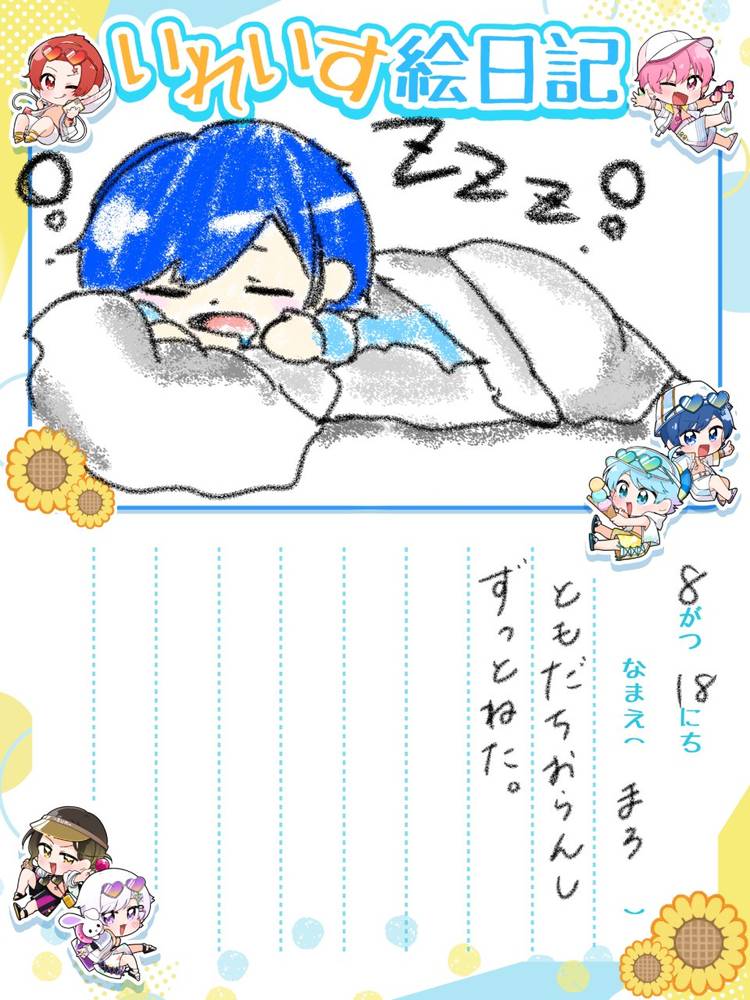 いれいす絵日記
ZZZ
8がつ 18にち
なまえ( まろ )
ともだちおらんし
ずっとねた。